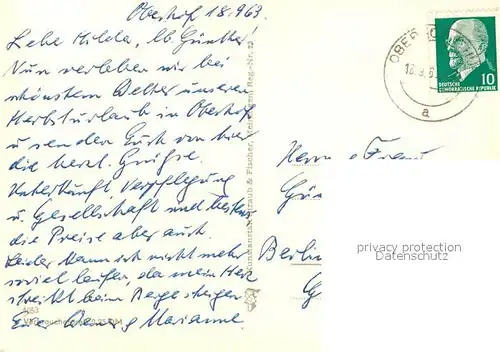 Oberhof 18.9.63.
Liebe Hilda, lb. Günther!
Nun verleben wir bei
schönstem Wetter unseren
Herbsturlaub in Oberhof
u. senden Euch von hier
die herzl. Grüße.
Unterkunft Verpflegung
u. Gesellschaft sind
die Preise aber auch.
Leider kann ich nicht mehr
soviel laufen, da mein Herz
streikt beim Bergesteigen
Eure u. Marianne.
Straub & Fischer, Meiningen Reg.-Nr.
OBERHOF
18.9.63
a
10
DEUTSCHE
DEMOKRATISCHE REPUBLIK
Herrn u. Frau
Gün
Berlin
privacy protection
Datenschutz